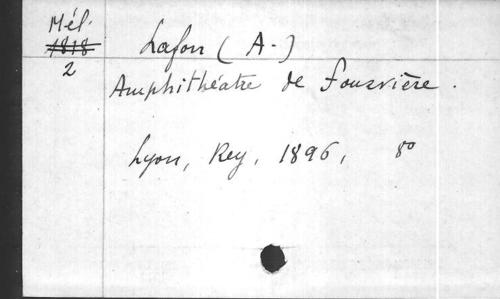 Mél.
1818
2
Lafon (A-)
Amphithéatre de Fourvière.
Lyon, Rey, 1896, 8°